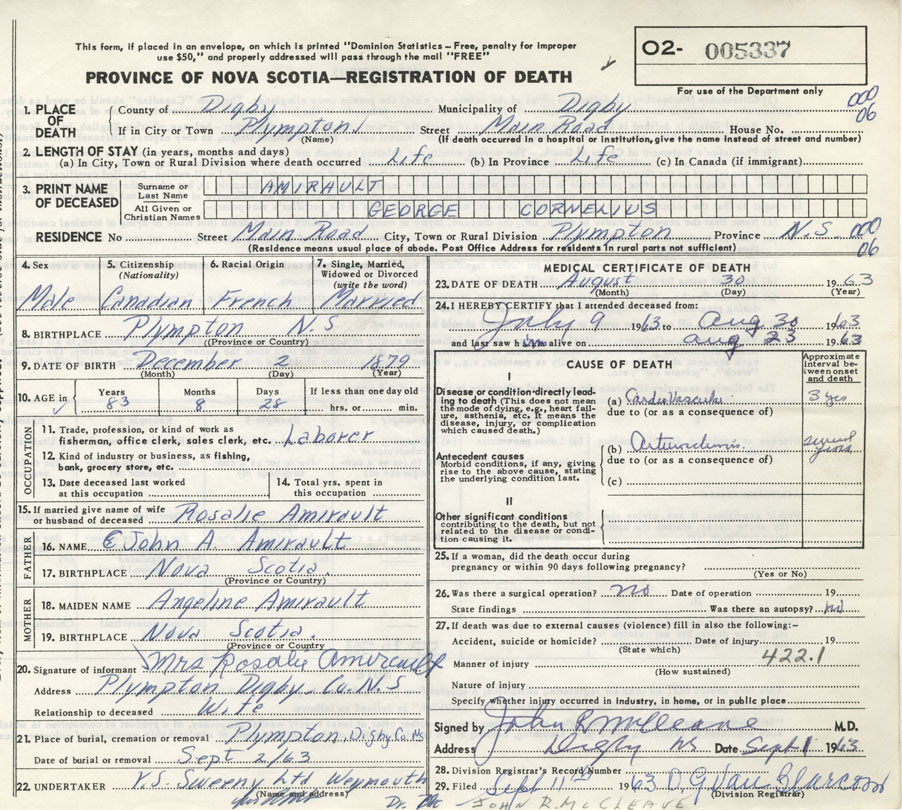 This form, if placed in an envelope, on which is printed "Dominion Statistics – Free, penalty for improper
use $50," and properly addressed will pass through the mail "FREE"
PROVINCE OF NOVA SCOTIA—REGISTRATION OF DEATH
O2- 005337
For use of the Department only
1. PLACE OF DEATH
County of Digby Municipality of Digby 000
If in City or Town Plympton Street Main Road House No. 06
(Name) (If death occurred in a hospital or institution, give the name instead of street and number)
2. LENGTH OF STAY (in years, months and days)
(a) In City, Town or Rural Division where death occurred Life (b) In Province Life (c) In Canada (if immigrant)
3. PRINT NAME OF DECEASED
Surname or Last Name AMIRAULT
All Given or Christian Names GEORGE CORNELIUS
RESIDENCE No Street Main Road City, Town or Rural Division Plympton Province N.S 000
(Residence means usual place of abode. Post Office Address for residents in rural parts not sufficient) 06
4. Sex
Male
5. Citizenship (Nationality)
Canadian
6. Racial Origin
French
7. Single, Married, Widowed or Divorced (write the word)
Married
8. BIRTHPLACE Plympton N.S
(Province or Country)
9. DATE OF BIRTH December 2 1879
(Month) (Day) (Year)
10. AGE in Years Months Days If less than one day old
83 8 28 hrs. or min.
OCCUPATION
11. Trade, profession, or kind of work as
fisherman, office clerk, sales clerk, etc. Laborer
12. Kind of industry or business, as fishing,
bank, grocery store, etc.
13. Date deceased last worked at this occupation
14. Total yrs. spent in this occupation
15. If married give name of wife
or husband of deceased Rosalie Amirault
FATHER
16. NAME John A. Amirault
17. BIRTHPLACE Nova Scotia
(Province or Country)
MOTHER
18. MAIDEN NAME Angeline Amirault
19. BIRTHPLACE Nova Scotia.
(Province or Country)
20. Signature of informant Mrs Rosalie Amirault
Address Plympton Digby Co. N.S
Relationship to deceased Wife
21. Place of burial, cremation or removal Plympton, Digby Co NS
Date of burial or removal Sept 2/63
22. UNDERTAKER V.S. Sweeny Ltd Weymouth
(Name and address)
MEDICAL CERTIFICATE OF DEATH
23. DATE OF DEATH August 30 1963
(Month) (Day) (Year)
24. I HEREBY CERTIFY that I attended deceased from:
July 9 1963 to Aug 30 1963
and last saw him alive on Aug 23 1963
CAUSE OF DEATH
Approximate interval between onset and death
I
Disease or condition directly leading to death (This does not mean the mode of dying, e.g., heart failure, asthenia, etc. It means the disease, injury, or complication which caused death.)
(a) Cardiovascular 3 yrs
due to (or as a consequence of)
Antecedent causes
Morbid conditions, if any, giving rise to the above cause, stating the underlying condition last.
(b) several years
due to (or as a consequence of)
(c)
II
Other significant conditions
contributing to the death, but not related to the disease or condition causing it.
25. If a woman, did the death occur during
pregnancy or within 90 days following pregnancy?
(Yes or No)
26. Was there a surgical operation? no Date of operation 19
State findings Was there an autopsy? no
27. If death was due to external causes (violence) fill in also the following:-
Accident, suicide or homicide? Date of injury 19
(State which)
Manner of injury 422.1
(How sustained)
Nature of injury
Specify whether injury occurred in industry, in home, or in public place
Signed by John R McCleave M.D.
Address Digby NS Date Sept 1 1963
28. Division Registrar's Record Number
29. Filed Sept 11th 1963
(Division Registrar)
Dr. Mc JOHN R. McCLEAVE